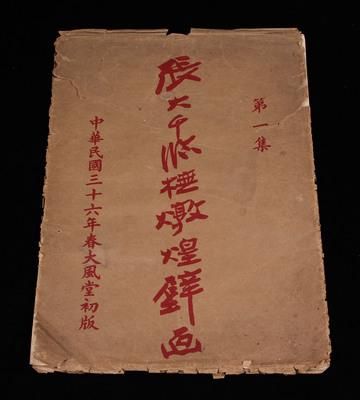 第一集
張大千臨橅燉煌壁画
中華民國三十六年春大風堂初版